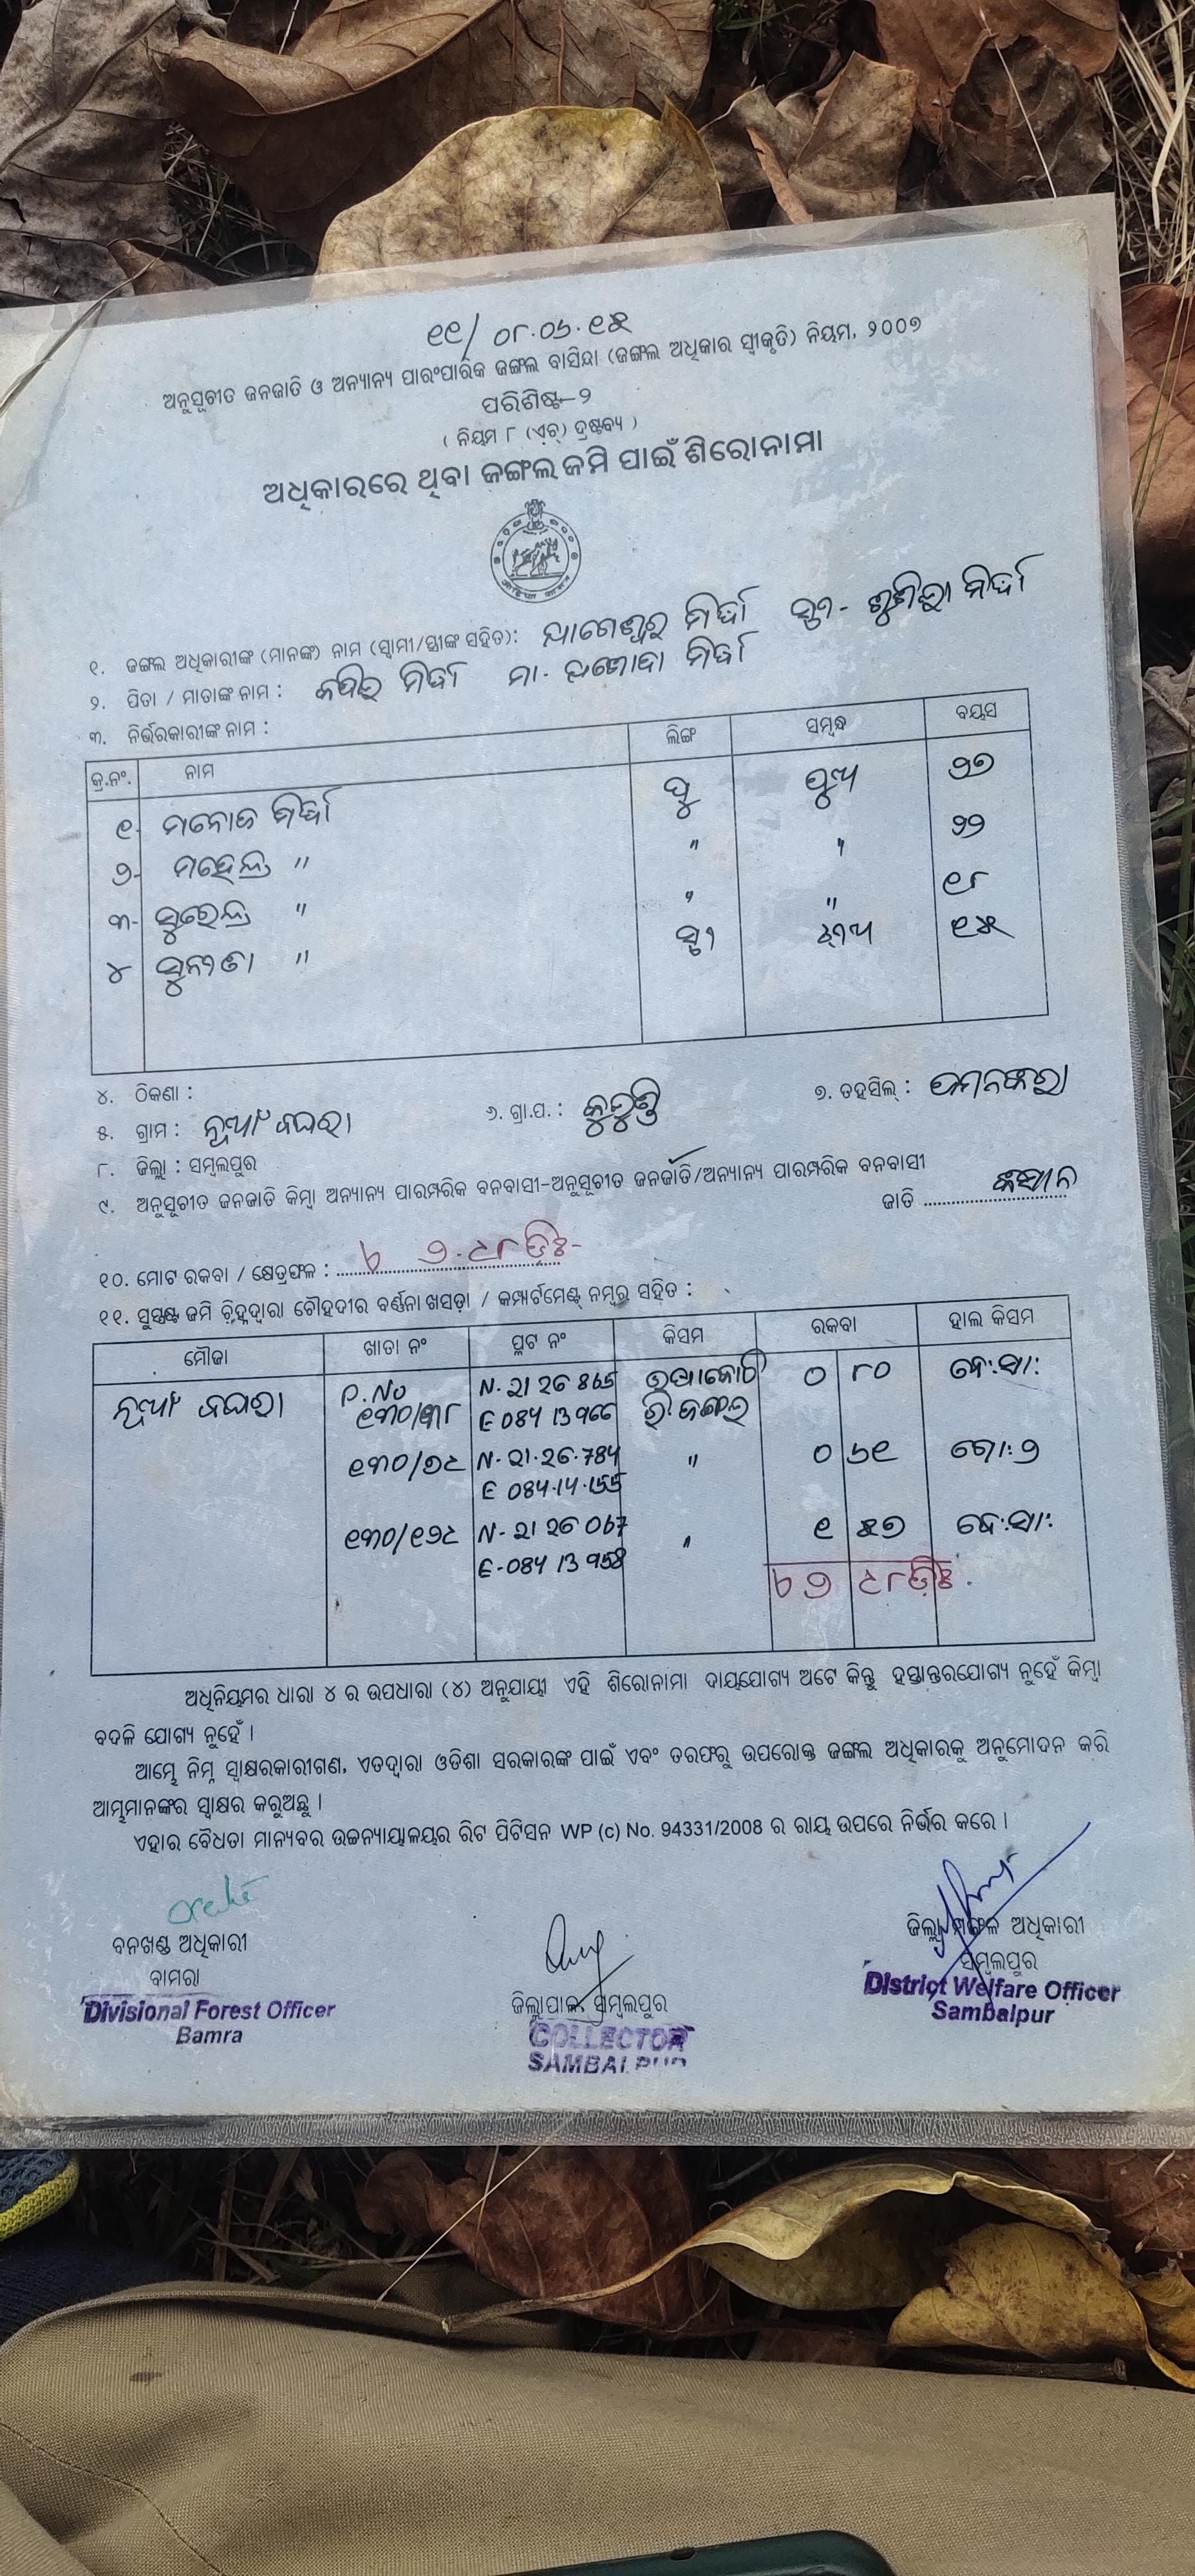 ୧୧/ ୦୮.୦୬.୧୫
ଅନୁସୂଚୀତ ଜନଜାତି ଓ ଅନ୍ୟାନ୍ୟ ପାରଂପାରିକ ଜଙ୍ଗଲ ବାସିନ୍ଦା (ଜଙ୍ଗଲ ଅଧିକାର ସ୍ୱୀକୃତି) ନିୟମ, ୨୦୦୭
ପରିଶିଷ୍ଟ-୨
( ନିୟମ ୮ (ଏଚ୍) ଦ୍ରଷ୍ଟବ୍ୟ )
ଅଧିକାରରେ ଥିବା ଜଙ୍ଗଲ ଜମି ପାଇଁ ଶିରୋନାମା
୧. ଜଙ୍ଗଲ ଅଧିକାରୀଙ୍କ (ମାନଙ୍କ) ନାମ (ସ୍ୱାମୀ/ସ୍ତ୍ରୀଙ୍କ ସହିତ): ମିର୍ଦ୍ଧା ସ୍ତ୍ରୀ- ମିର୍ଦ୍ଧା
୨. ପିତା / ମାତାଙ୍କ ନାମ : ମିର୍ଦ୍ଧା ମା. ମିର୍ଦ୍ଧା
୩. ନିର୍ଭରକାରୀଙ୍କ ନାମ :
କ୍ର.ନଂ. ନାମ ଲିଙ୍ଗ ସମ୍ବନ୍ଧ ବୟସ
୧- ମନୋଜ ମିର୍ଦ୍ଧା ପୁ ପୁଅ ୨୭
୨- ମହେନ୍ଦ୍ର " " " ୨୨
୩- ସୁରେନ୍ଦ୍ର " " " ୧୮
୪ ସୁନୀତା " ସ୍ତ୍ରୀ ଝୀଅ ୧୫
୪. ଠିକଣା :
୫. ଗ୍ରାମ : ନୂଆଁ ଜଘରା ୬. ଗ୍ରା.ପ. : ୭. ତହସିଲ୍ : ଜମନକରା
୮. ଜିଲ୍ଲା : ସମ୍ବଲପୁର
୯. ଅନୁସୂଚୀତ ଜନଜାତି କିମ୍ବା ଅନ୍ୟାନ୍ୟ ପାରମ୍ପରିକ ବନବାସୀ-ଅନୁସୂଚୀତ ଜନଜାତି/ଅନ୍ୟାନ୍ୟ ପାରମ୍ପରିକ ବନବାସୀ
ଜାତି କିସାନ
୧୦. ମୋଟ ରକବା / କ୍ଷେତ୍ରଫଳ : ୨.୯୮ ଡିଃ-
୧୧. ସୁସ୍ପଷ୍ଟ ଜମି ଚିହ୍ନଦ୍ୱାରା ଚୌହଦୀର ବର୍ଣ୍ଣନା ଖସଡ଼ା / କମ୍ପାର୍ଟମେଣ୍ଟ୍ ନମ୍ବର ସହିତ :
ମୌଜା ଖାତା ନଂ ପ୍ଲଟ ନଂ କିସମ ରକବା ହାଲ କିସମ
ନୂଆଁ ଜଘରା P. No N- 21 26 865 ୦ ୮୦ ବେ:ସା:
୧୩୦/୩୮ E 084 13 966 ଜଙ୍ଗଲ
୧୩୦/୭୯ N- 21.26.784 " ୦ ୬୧ ଗୋ:୨
E 084.14.155
୧୩୦/୧୨୯ N- 21 26 067 " ୧ ୫୭ ବେ:ସା:
E-084 13 958
୨ ୯୮ଡିଃ.
ଅଧିନିୟମର ଧାରା ୪ ର ଉପଧାରା (୪) ଅନୁଯାୟୀ ଏହି ଶିରୋନାମା ଦାୟଯୋଗ୍ୟ ଅଟେ କିନ୍ତୁ ହସ୍ତାନ୍ତରଯୋଗ୍ୟ ନୁହେଁ କିମ୍ବା
ବଦଳି ଯୋଗ୍ୟ ନୁହେଁ ।
ଆମ୍ଭେ ନିମ୍ନ ସ୍ୱାକ୍ଷରକାରୀଗଣ, ଏତଦ୍ୱାରା ଓଡିଶା ସରକାରଙ୍କ ପାଇଁ ଏବଂ ତରଫରୁ ଉପରୋକ୍ତ ଜଙ୍ଗଲ ଅଧିକାରକୁ ଅନୁମୋଦନ କରି
ଆମ୍ଭମାନଙ୍କର ସ୍ୱାକ୍ଷର କରୁଅଛୁ ।
ଏହାର ବୈଧତା ମାନ୍ୟବର ଉଚ୍ଚନ୍ୟାୟାଳୟର ରିଟ ପିଟିସନ WP (c) No. 94331/2008 ର ରାୟ ଉପରେ ନିର୍ଭର କରେ ।
ବନଖଣ୍ଡ ଅଧିକାରୀ
ବାମରା
Divisional Forest Officer
Bamra
ଜିଲ୍ଲାପାଳ, ସମ୍ବଲପୁର
COLLECTOR
SAMBALPUR
ଜିଲ୍ଲା ମଙ୍ଗଳ ଅଧିକାରୀ
ସମ୍ବଲପୁର
District Welfare Officer
Sambalpur